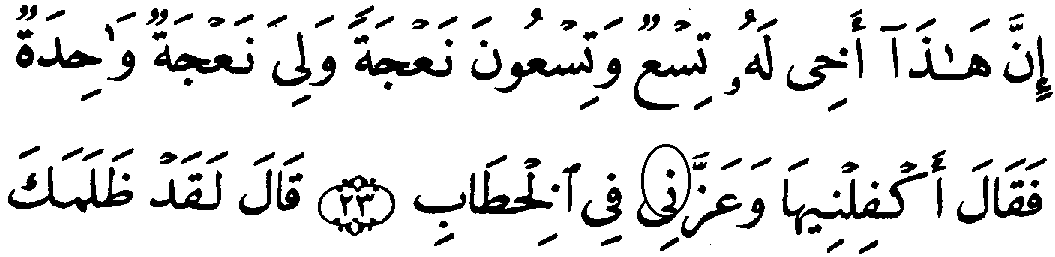 إِنَّ هَـٰذَآ أَخِى لَهُۥ تِسْعٌ وَتِسْعُونَ نَعْجَةً وَلِىَ نَعْجَةٌ وَٰحِدَةٌ
فَقَالَ أَكْفِلْنِيهَا وَعَزَّنِى فِى ٱلْخِطَابِ ٢٣ قَالَ لَقَدْ ظَلَمَكَ